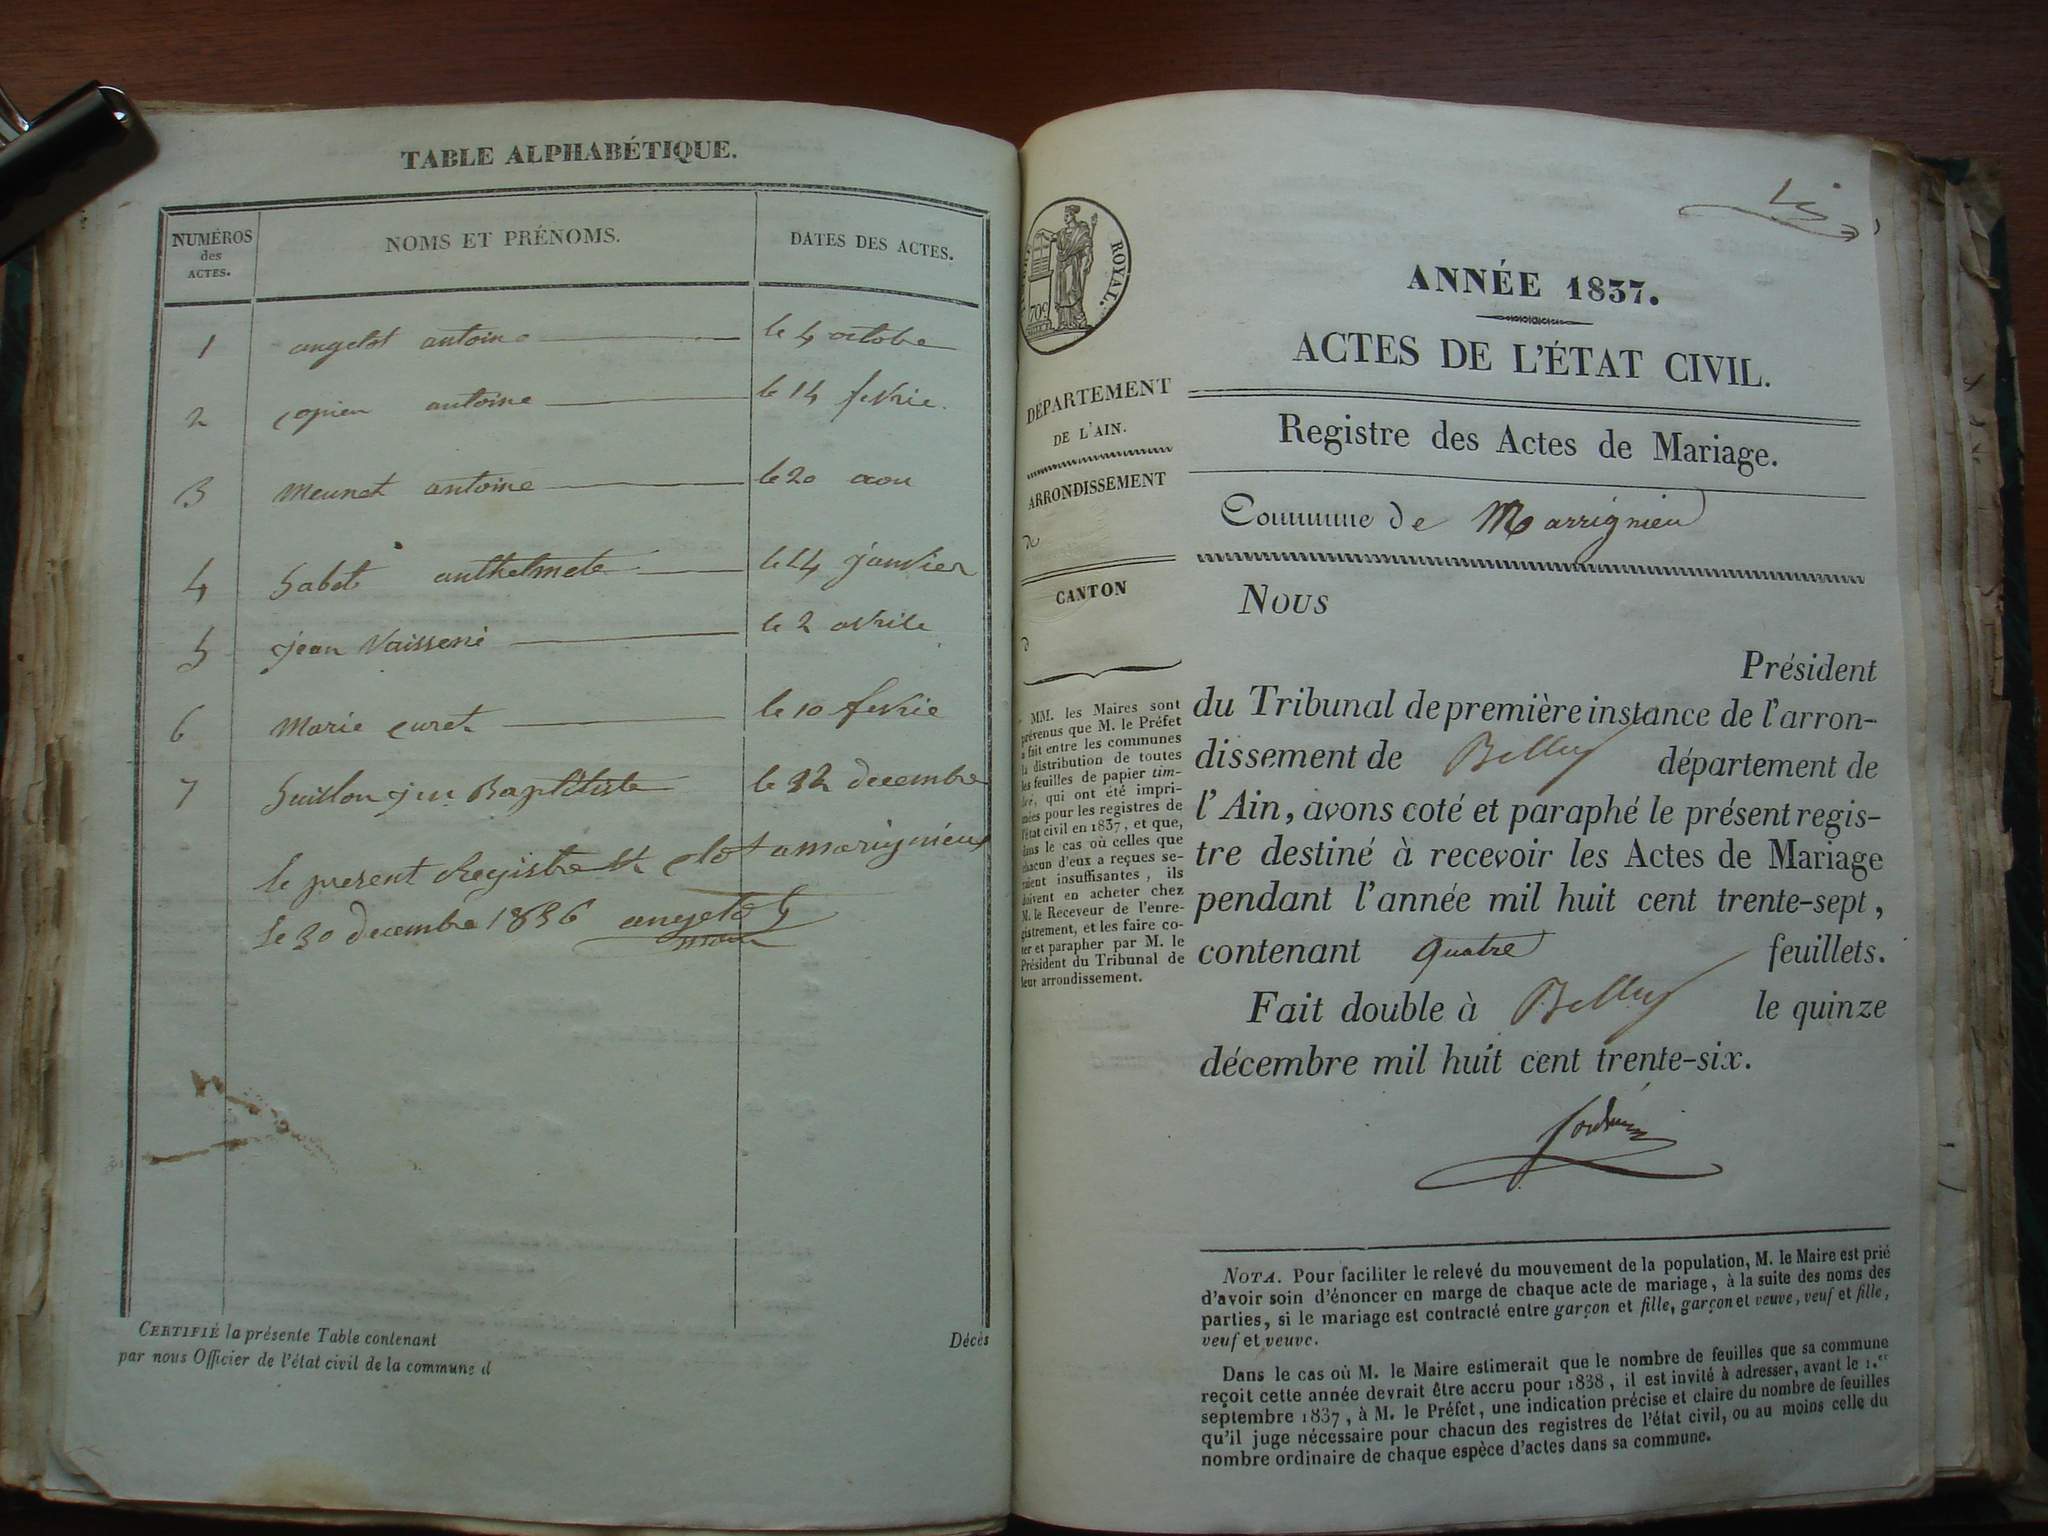 TABLE ALPHABÉTIQUE.
NUMÉROS des ACTES. NOMS ET PRÉNOMS. DATES DES ACTES.
1 angelot antoine le 4 octobre
2 antoine le 14 fevrie.
3 Meunet antoine le 20 aou
4 anthelmete le 14 janvier
5 jean Vaissené le 2 avrile
6 Marie curet le 10 fevrie
7 Guillon jn Baptiste le 22 decembre
le present Registre clot a marignieux
le 30 decembre 1836 angelot
maire
CERTIFIÉ la présente Table contenant Décès
par nous Officier de l'état civil de la commune d
ROYAL.
70c
DÉPARTEMENT
DE L'AIN.
ARRONDISSEMENT
de
CANTON
d
MM. les Maires sont
prévenus que M. le Préfet
a fait entre les communes
la distribution de toutes
les feuilles de papier tim-
bré, qui ont été impri-
mées pour les registres de
l'état civil en 1837, et que,
dans le cas où celles que
chacun d'eux a reçues se-
raient insuffisantes, ils
doivent en acheter chez
M. le Receveur de l'enre-
gistrement, et les faire co-
ter et parapher par M. le
Président du Tribunal de
leur arrondissement.
ANNÉE 1837.
ACTES DE L'ÉTAT CIVIL.
Registre des Actes de Mariage.
Commune de Marrignieu
Nous
Président
du Tribunal de première instance de l'arron-
dissement de Belley département de
l'Ain, avons coté et paraphé le présent regis-
tre destiné à recevoir les Actes de Mariage
pendant l'année mil huit cent trente-sept,
contenant quatre feuillets.
Fait double à Belley le quinze
décembre mil huit cent trente-six.
NOTA. Pour faciliter le relevé du mouvement de la population, M. le Maire est prié
d'avoir soin d'énoncer en marge de chaque acte de mariage, à la suite des noms des
parties, si le mariage est contracté entre garçon et fille, garçon et veuve, veuf et fille,
veuf et veuve.
Dans le cas où M. le Maire estimerait que le nombre de feuilles que sa commune
reçoit cette année devrait être accru pour 1838, il est invité à adresser, avant le 1.er
septembre 1837, à M. le Préfet, une indication précise et claire du nombre de feuilles
qu'il juge nécessaire pour chacun des registres de l'état civil, ou au moins celle du
nombre ordinaire de chaque espèce d'actes dans sa commune.